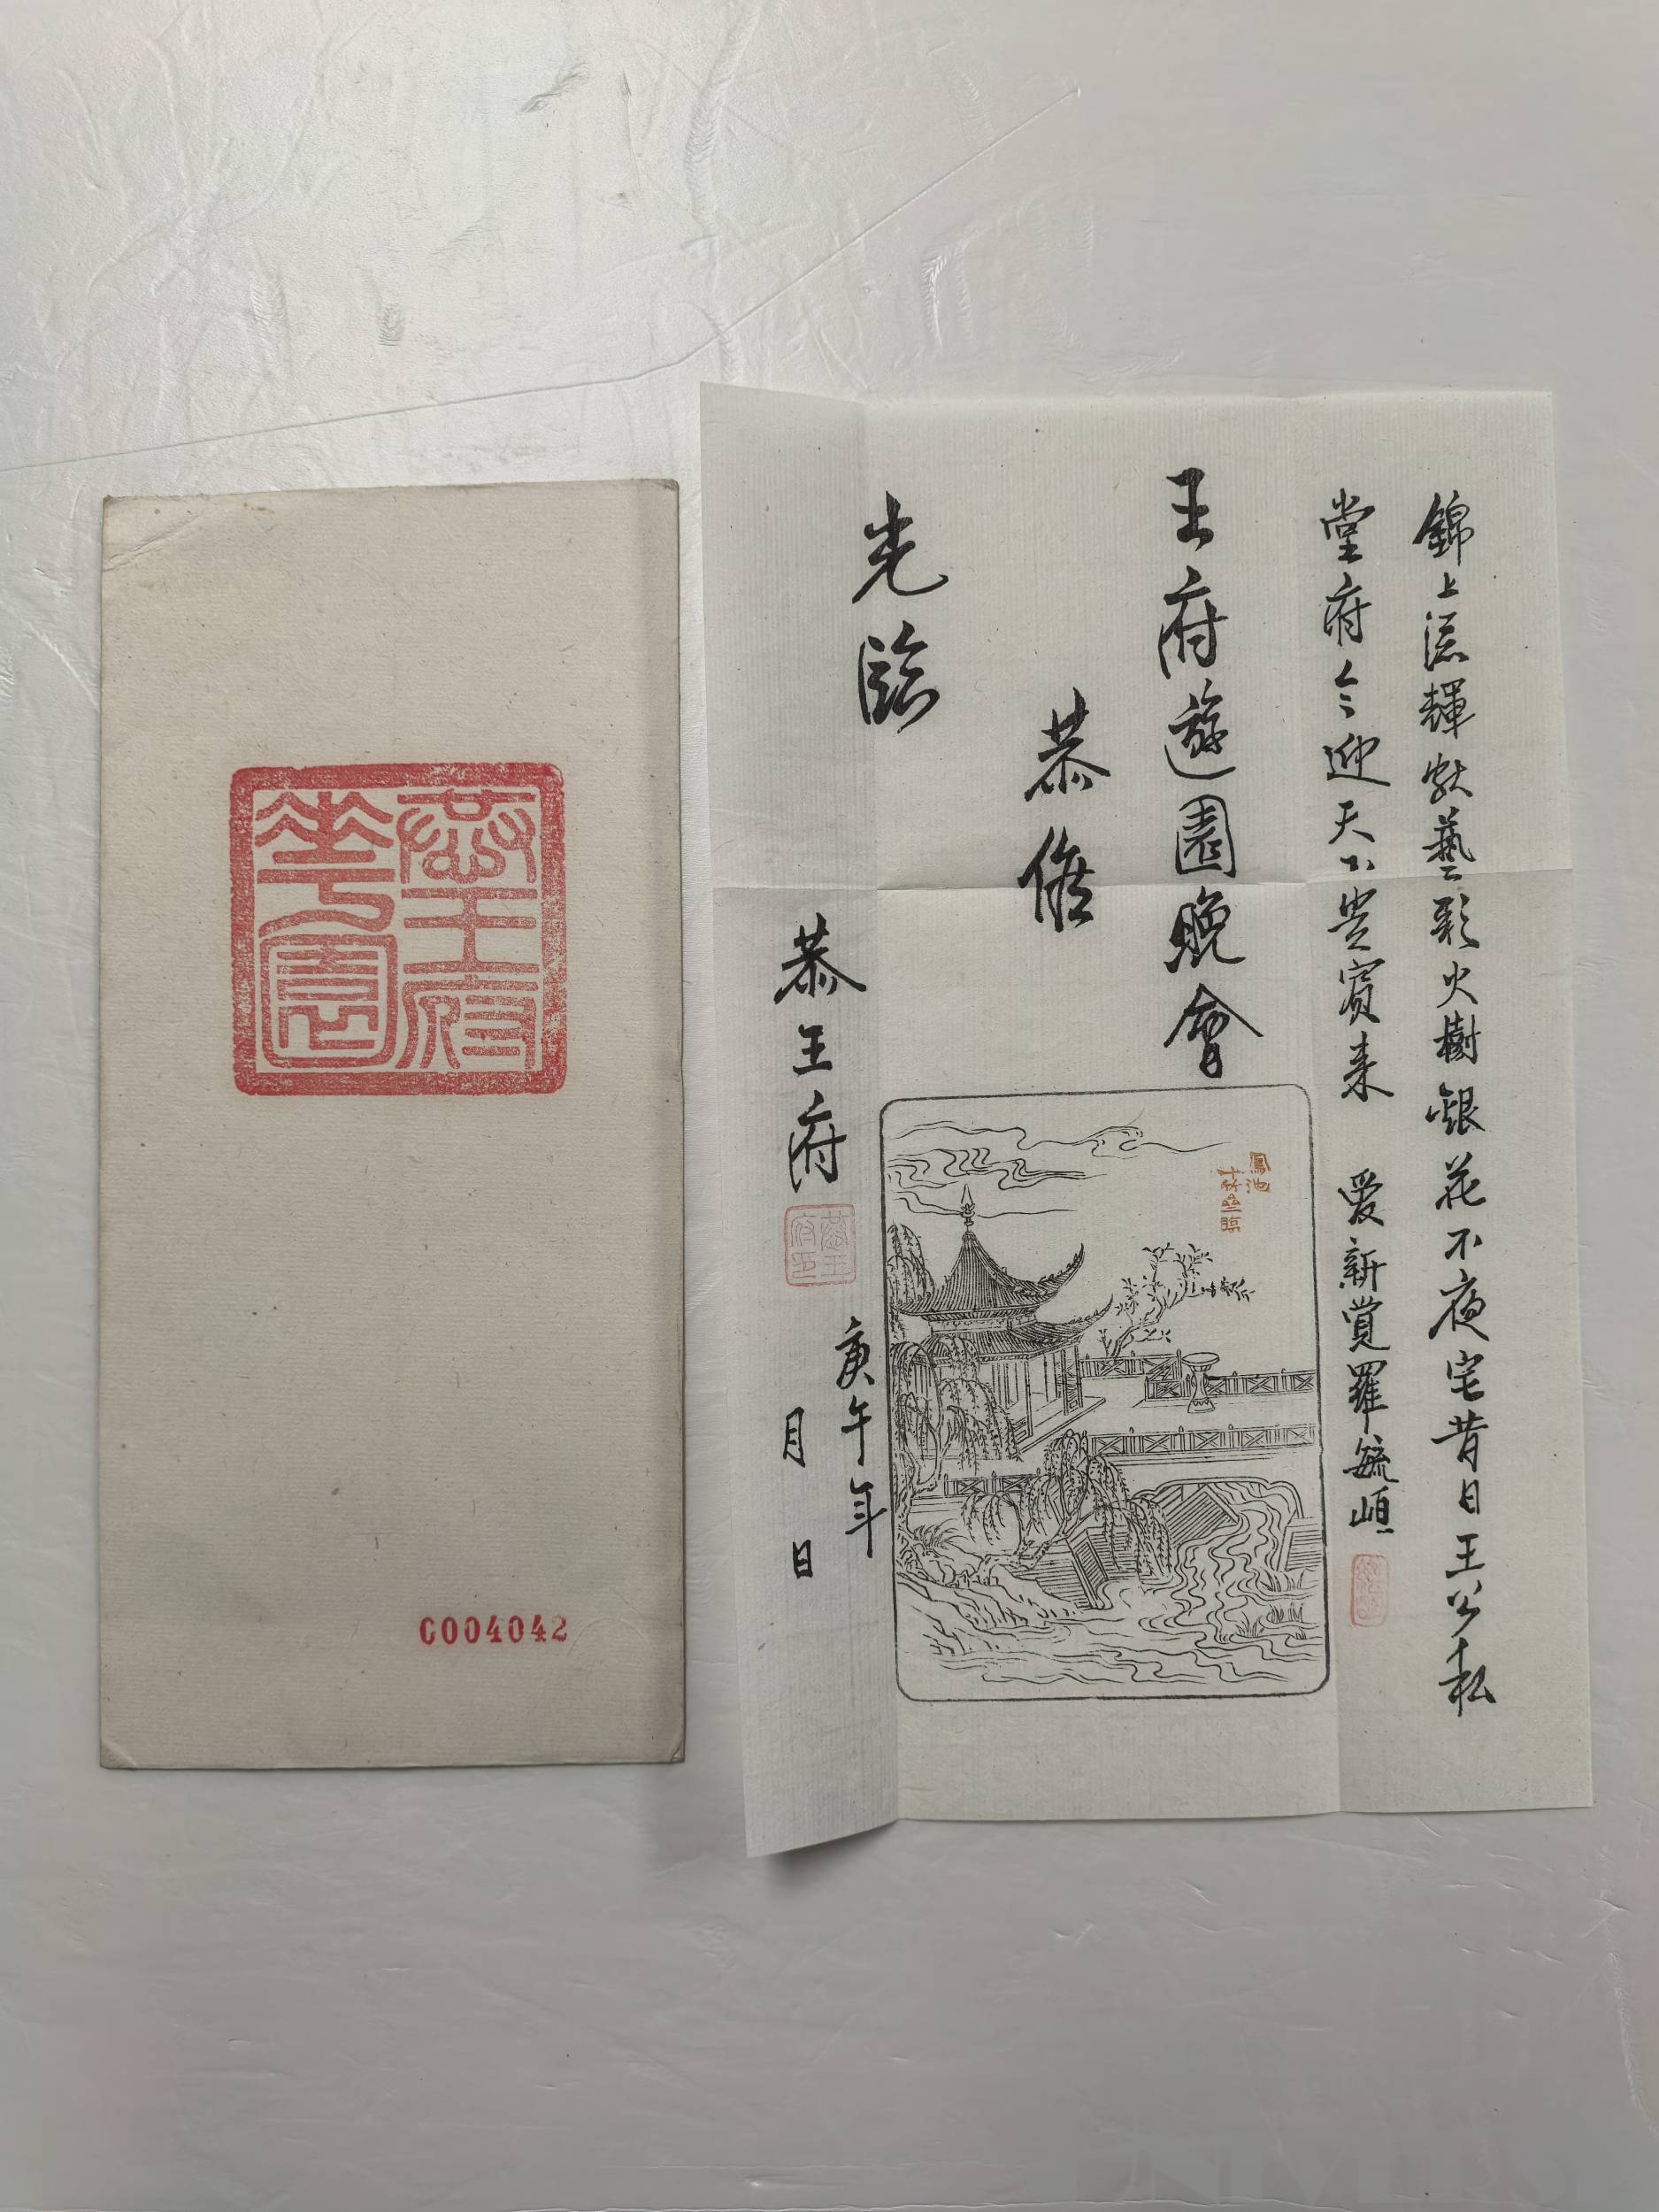 恭王府
華園
C004042
錦上添輝献藝火樹銀花不夜宅昔日王公私
堂府今迎天下貴賓来 愛新覺羅毓峘
王府遊園晚會
恭候
光臨
鳳池
恭王府
恭王府印
庚午年
月 日